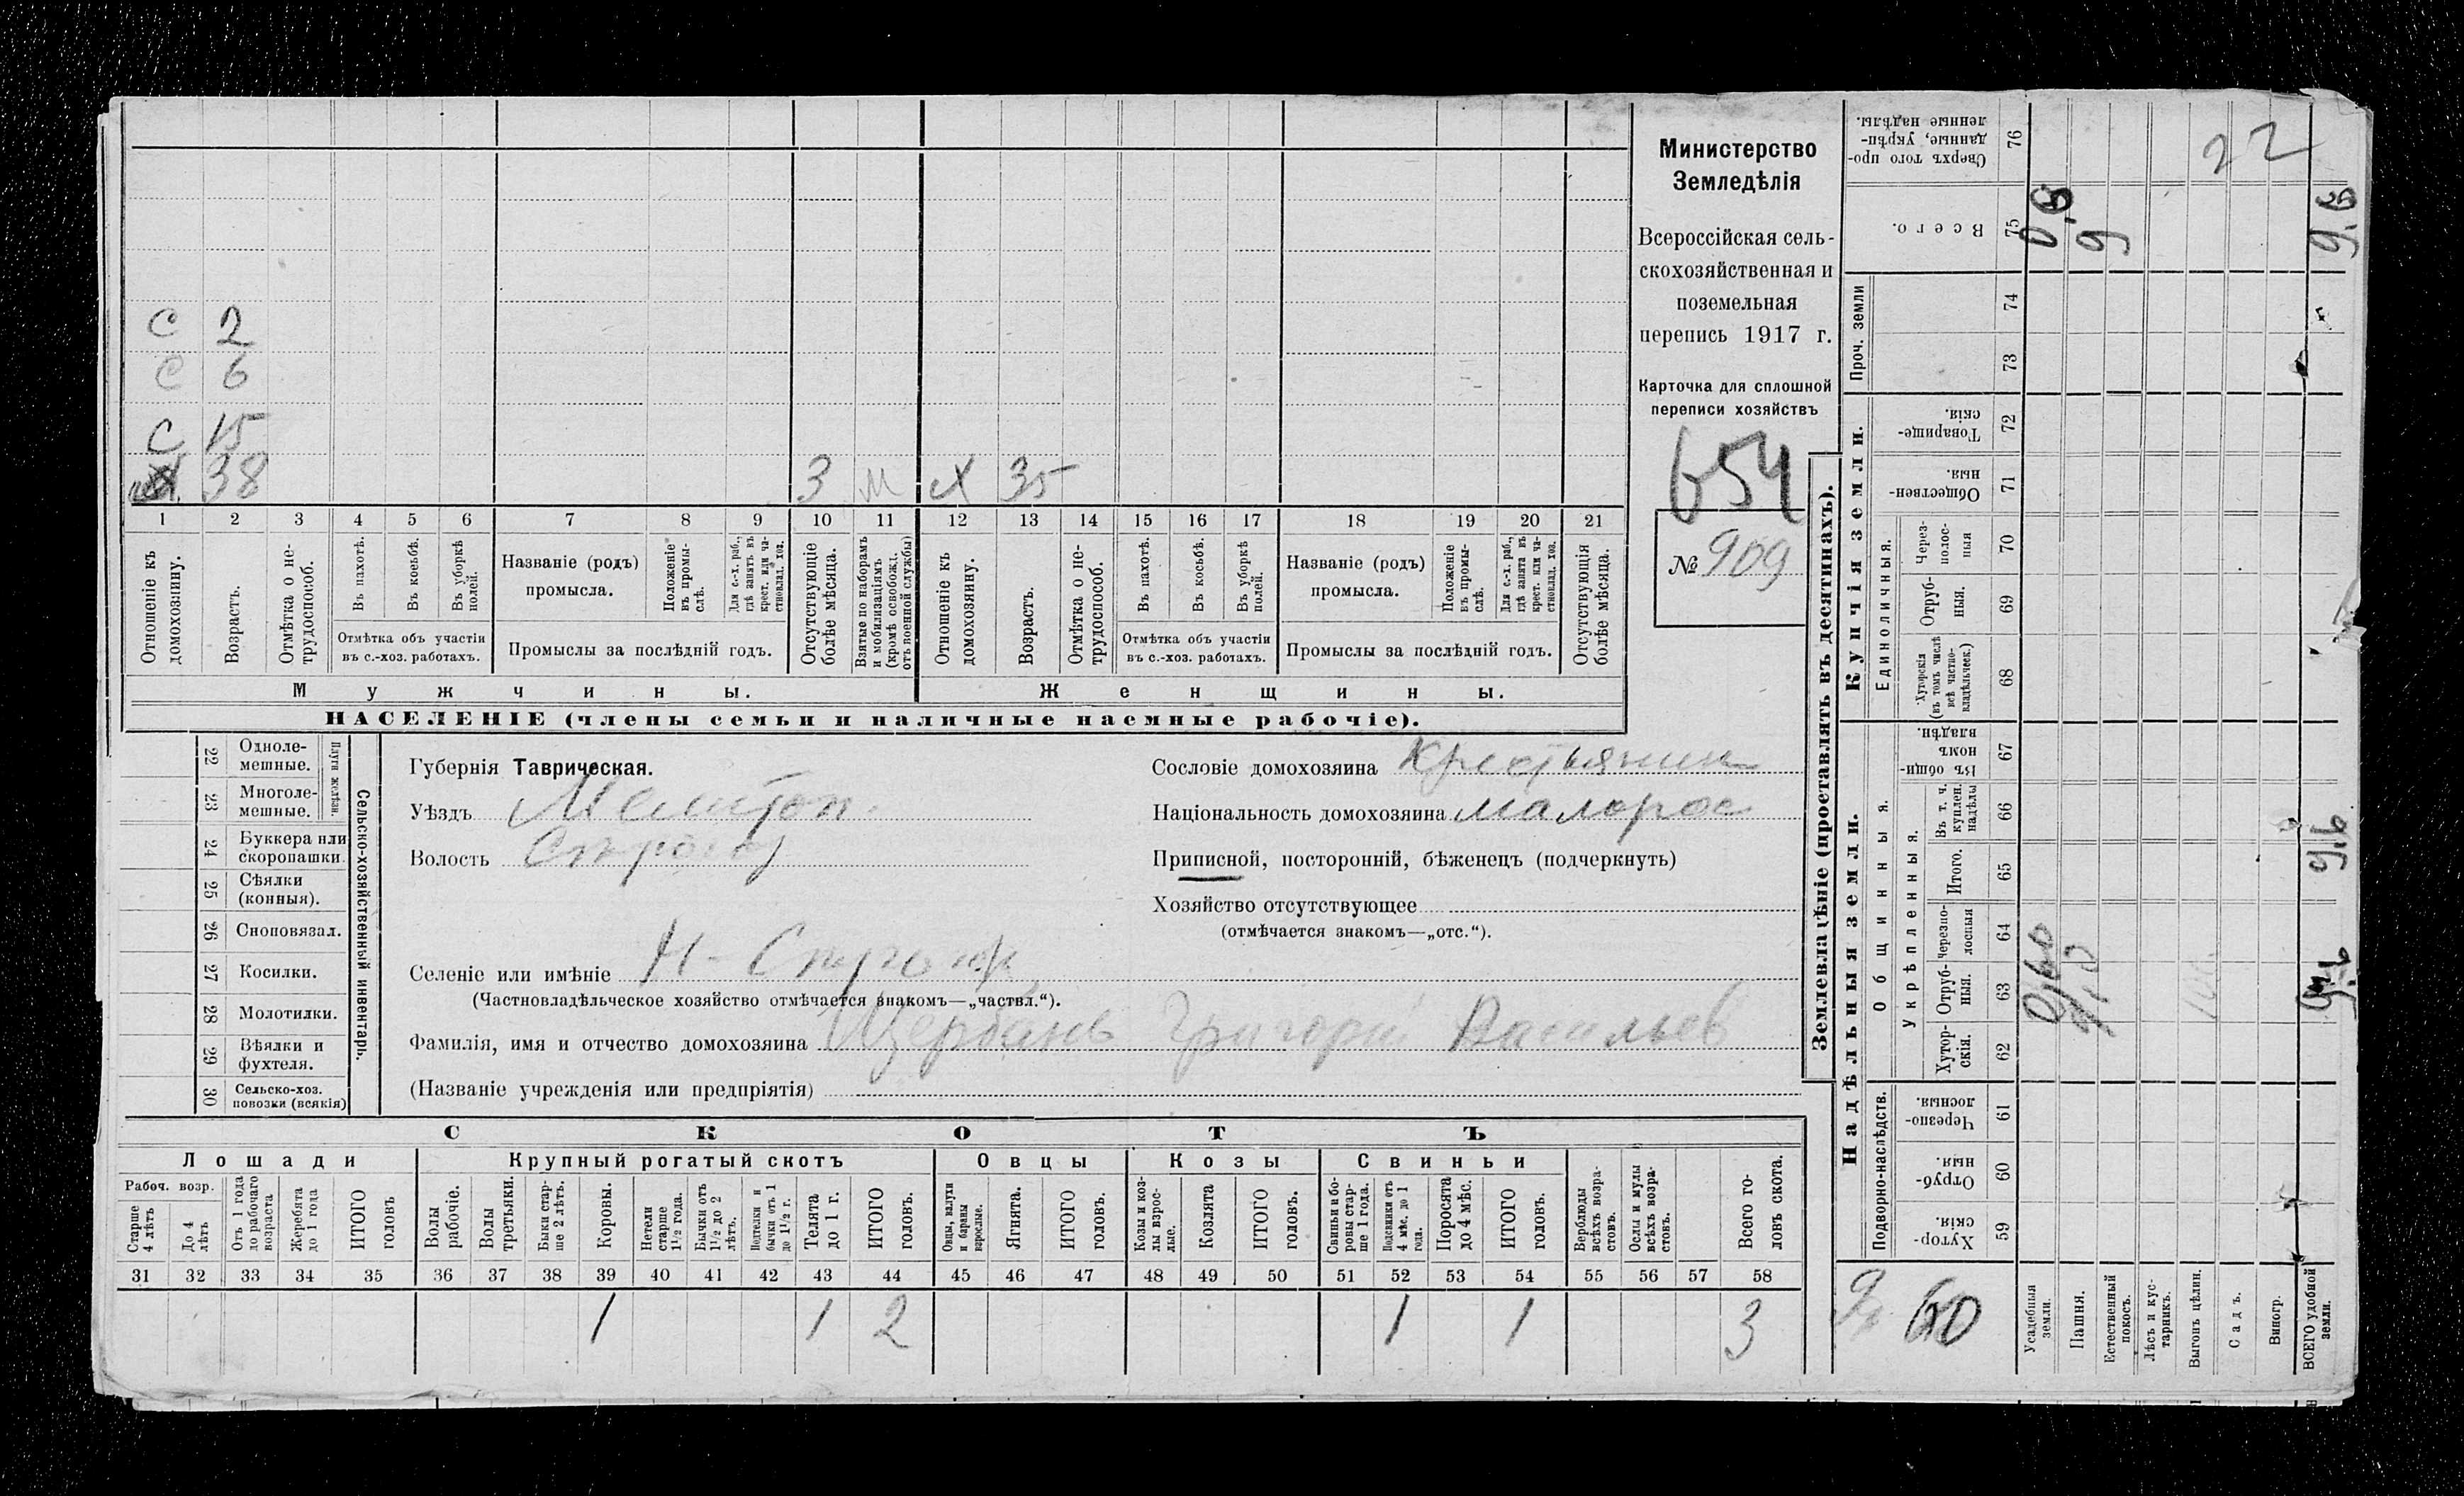 Министерство
Земледѣлія
Всероссійская сель-
скохозяйственная и
поземельная
перепись 1917 г.
Карточка для сплошной
переписи хозяйствъ
654
№ 909
С 2
С 6
С 15
38 3 м Х 35
1 2 3 4 5 6 7 8 9 10 11 12 13 14 15 16 17 18 19 20 21
Отношеніе къ домохозяину.
Возрастъ.
Отмѣтка о не-трудоспособ.
Въ пахотѣ.
Въ косьбѣ.
Въ уборкѣ полей.
Отмѣтка объ участіи
въ с.-хоз. работахъ.
Названіе (родъ)
промысла.
Положеніе въ промы-слѣ.
Для с.-х. раб., гдѣ занятъ въ крест. или ча-стновлад. хоз.
Промыслы за послѣдній годъ.
Отсутствующіе болѣе мѣсяца.
Взятые по наборамъ и мобилизаціямъ (кромѣ освобожд. отъ военной службы)
Отношеніе къ домохозяину.
Возрастъ.
Отмѣтка о не-трудоспособ.
Въ пахотѣ.
Въ косьбѣ.
Въ уборкѣ полей.
Отмѣтка объ участіи
въ с.-хоз. работахъ.
Названіе (родъ)
промысла.
Положеніе въ промы-слѣ.
Для с.-х. раб., гдѣ занята въ крест. или ча-стновлад. хоз.
Промыслы за послѣдній годъ.
Отсутствующія болѣе мѣсяца.
Мужчины.
Женщины.
НАСЕЛЕНІЕ (члены семьи и наличные наемные рабочіе).
Сельско-хозяйственный инвентарь.
Плуги желѣзн.
22 Одноле-мешные.
23 Многоле-мешные.
24 Буккера или скоропашки.
25 Сѣялки (конныя).
26 Сноповязал.
27 Косилки.
28 Молотилки.
29 Вѣялки и фухтеля.
30 Сельско-хоз. повозки (всякія)
Губернія Таврическая.
Уѣздъ Мелитоп.
Волость
Селеніе или имѣніе
(Частновладѣльческое хозяйство отмѣчается знакомъ—„частвл.“).
Фамилія, имя и отчество домохозяина Щербань Григорій Васильев
(Названіе учрежденія или предпріятія)
Сословіе домохозяина Крестьянин
Національность домохозяина малорос
Приписной, посторонній, бѣженецъ (подчеркнуть)
Хозяйство отсутствующее
(отмѣчается знакомъ—„отс.“).
СКОТЪ
Лошади
Крупный рогатый скотъ
Овцы
Козы
Свиньи
Рабоч. возр.
Старше 4 лѣтъ
До 4 лѣтъ
Отъ 1 года до рабочаго возраста
Жеребята до 1 года
ИТОГО головъ
Волы рабочіе.
Волы третьяки.
Быки стар-ше 2 лѣтъ.
Коровы.
Нетели старше 1½ года.
Бычки отъ 1½ до 2 лѣтъ.
Подтелки и бычки отъ 1 до 1½ г.
Телята до 1 г.
ИТОГО головъ.
Овцы, валухи и бараны взрослые.
Ягнята.
ИТОГО головъ.
Козы и коз-лы взрос-лые.
Козлята
ИТОГО головъ.
Свиньи и бо-ровы стар-ше 1 года.
Подсвинки отъ 4 мѣс. до 1 года.
Поросята до 4 мѣс.
ИТОГО головъ.
Верблюды всѣхъ возра-стовъ.
Ослы и мулы всѣхъ возра-стовъ.
Всего го-ловъ скота.
31 32 33 34 35 36 37 38 39 40 41 42 43 44 45 46 47 48 49 50 51 52 53 54 55 56 57 58
1 1 2 1 1 3
Землевладѣніе (проставлять въ десятинахъ).
Надѣльныя земли.
Купчія земли.
Проч. земли
Подворно-наслѣдств.
Общинныя.
Укрѣпленныя.
Единоличныя.
Хутор-скія. 59
Отруб-ныя. 60
Черезпо-лосныя. 61
Хутор-скія. 62
Отруб-ныя. 63
Черезпо-лосныя 64
Итого. 65
Въ т. ч. куплен. надѣлы 66
Въ общин-номъ владѣн. 67
Хуторскія (въ томъ числѣ всѣ частно-владѣльческ.) 68
Отруб-ныя. 69
Через-полос-ныя 70
Обществен-ныя. 71
Товарище-скія. 72
73
74
Всего. 75
Сверхъ того про-данные, укрѣп-ленные надѣлы. 76
Усадебныя земли.
Пашня.
Естественный покосъ.
Лѣсъ и кус-тарникъ.
Выгонъ цѣлин.
Садъ.
Виногр.
ВСЕГО удобной земли.
22
0,6
9
9,6
0,60
9,6
60